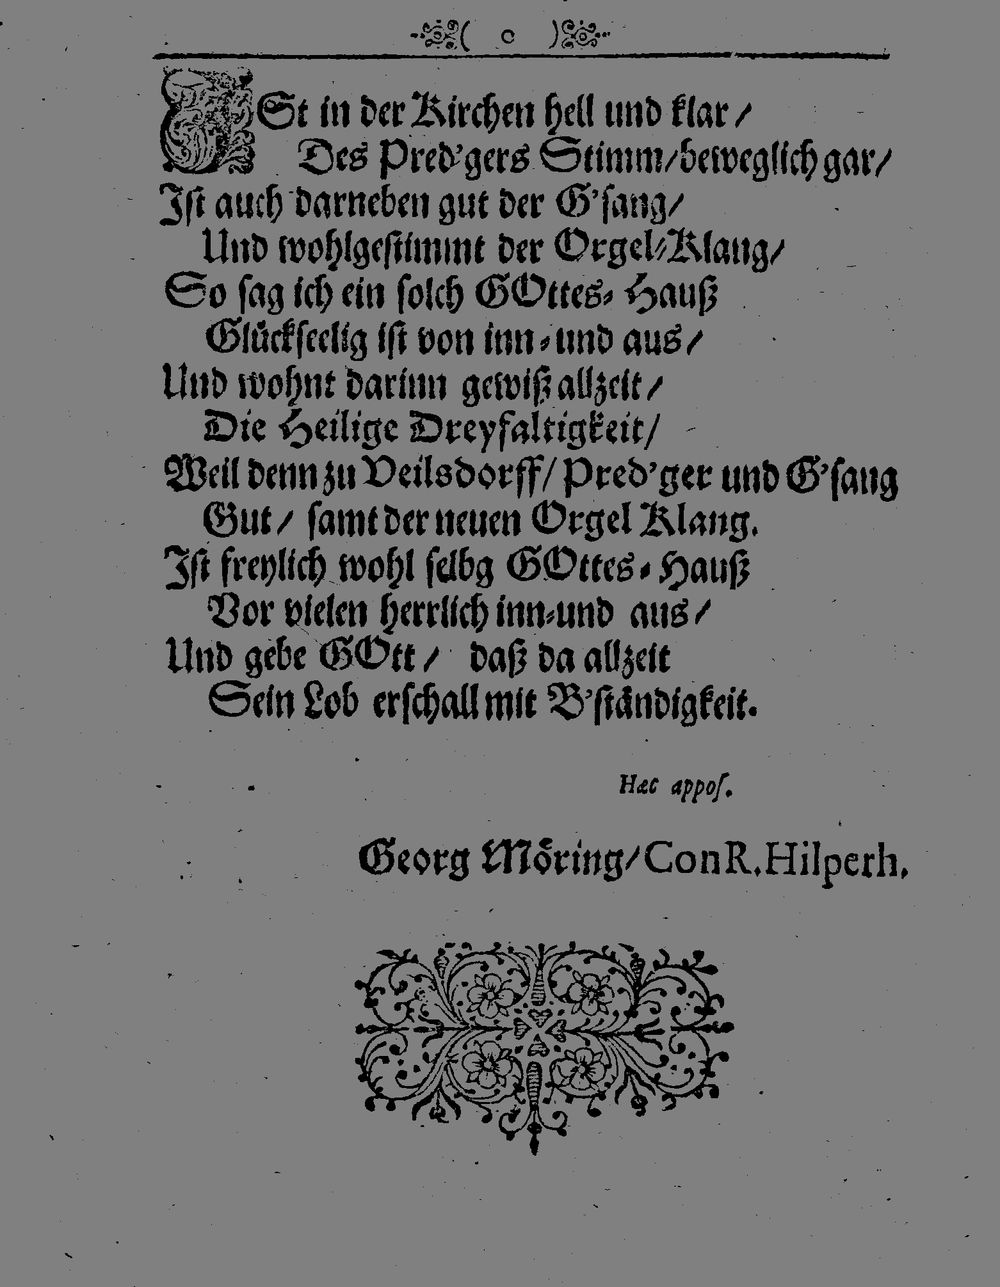 ( o )
ISt in der Kirchen hell und klar /
Des Pred'gers Stimm / beweglich gar /
Ist auch darneben gut der G'sang /
Und wohlgestimmt der Orgel-Klang /
So sag ich ein solch GOttes-Hauß
Glückseelig ist von inn-und aus /
Und wohnt darinn gewiß allzeit /
Die Heilige Dreyfaltigkeit /
Weil denn zu Veilsdorff / Pred'ger und G'sang
Gut / samt der neuen Orgel Klang.
Ist freylich wohl selbg GOttes-Hauß
Vor vielen herrlich inn-und aus /
Und gebe GOtt / daß da allzeit
Sein Lob erschall mit B'ständigkeit.
Hæc appos.
Georg Möring / ConR. Hilperh.